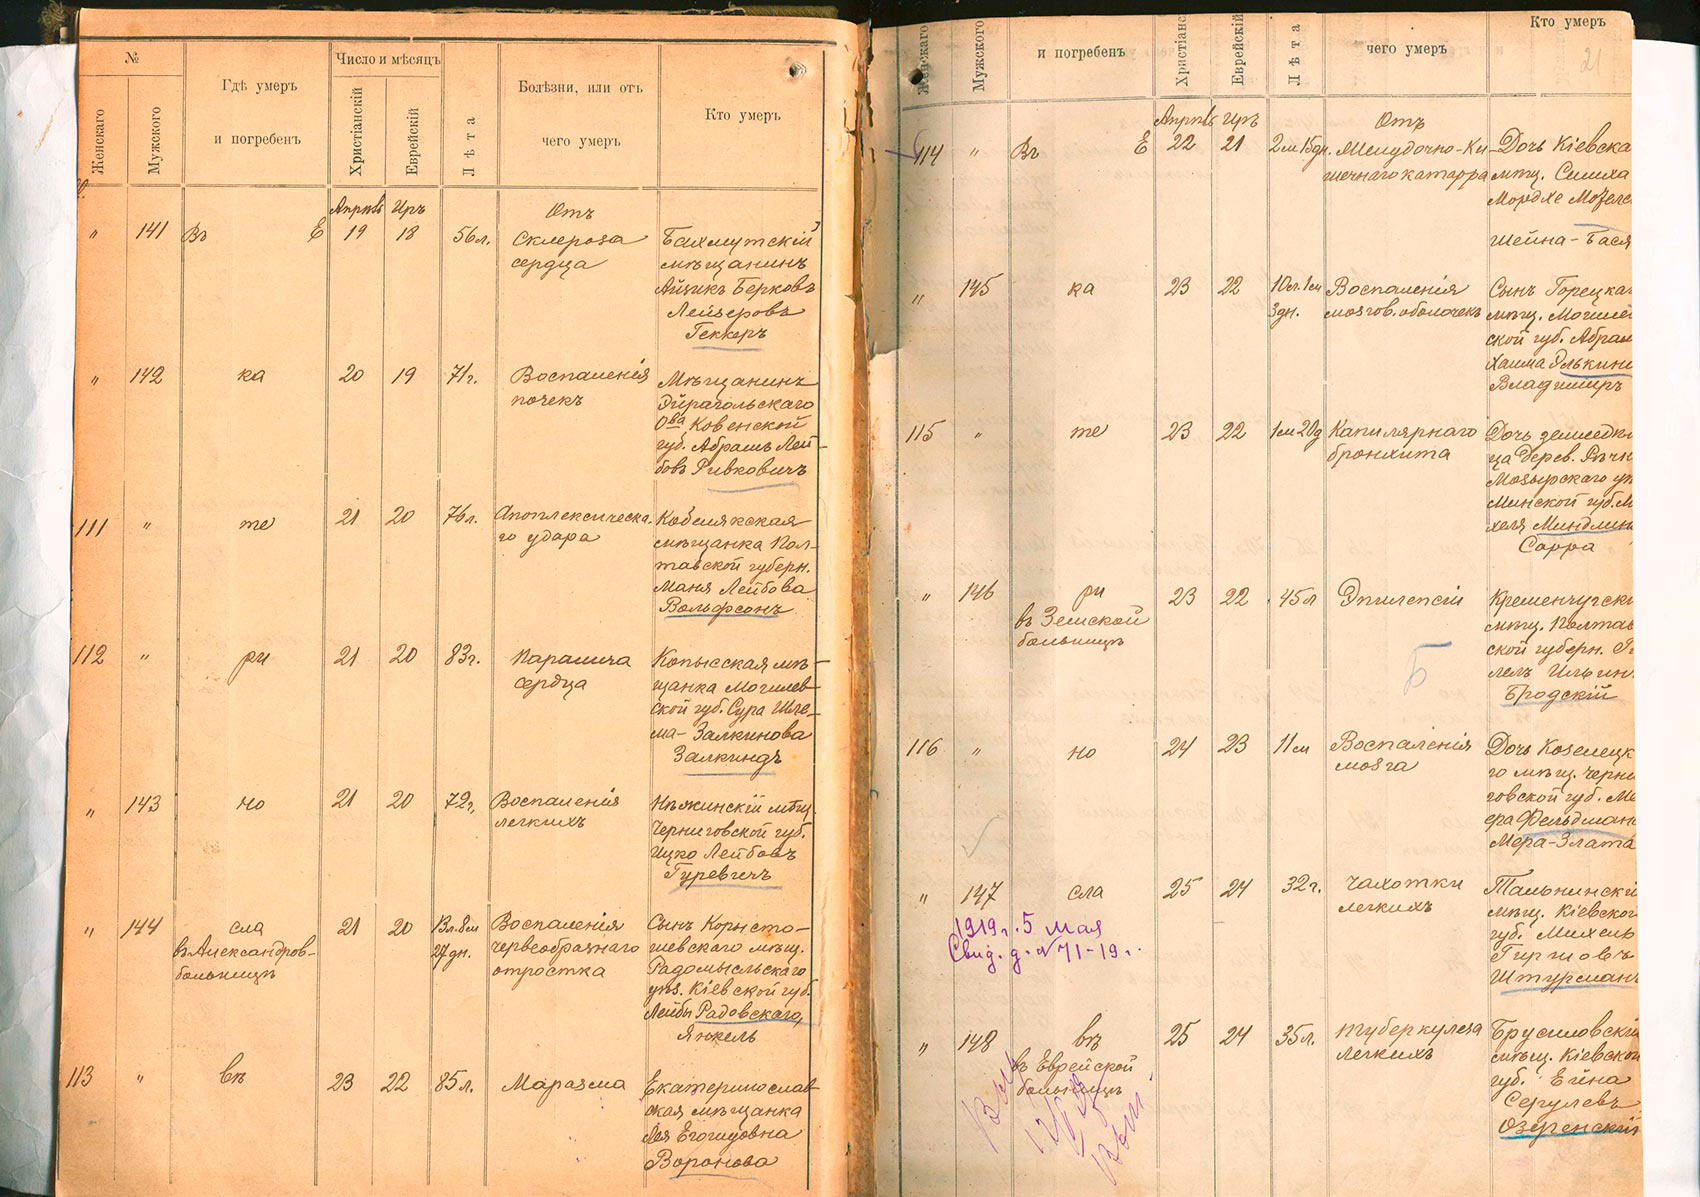 №
Число и мѣсяцъ
Женскаго
Мужского
Гдѣ умеръ
и погребенъ
Христіанскій
Еврейскій
Лѣта
Болѣзни, или отъ
чего умеръ
Кто умеръ
Апрѣль Иръ
Отъ
" 141 Въ Е 19 18 56л. Склероза
сердца
Бахмутскій
мѣщанинъ
Айцикъ Берковъ
Лейзеровъ
Геккеръ
" 142 ка 20 19 71г. Воспаленія
почекъ
Мѣщанинъ
Эйрагольскаго
Ова Ковенской
губ. Абрамъ Лей-
бовъ Ривковичъ
111 " те 21 20 76л. Апоплексическа-
го удара
Кобелякская
мѣщанка Пол-
тавской губерн.
Маня Лейбова
Вольфсонъ
112 " ри 21 20 83г. Паралича
сердца
Копысская мѣ-
щанка Могилев-
ской губ. Сура Шле-
ма-Залкинова
Залкиндъ
" 143 но 21 20 72г. Воспаленія
легкихъ
Нѣжинскій мѣщ.
Черниговской губ.
Ицко Лейбовъ
Гуревичъ
" 144 сла 21 20 13л. 8м
27дн.
въ Александров-
больницѣ
Воспаленія
червеобразнаго
отростка
Сынъ Коросто-
шевскаго мѣщ.
Радомысльскаго
уѣз. Кіевской губ.
Лейбы Радовскаго,
Янкель
113 " въ 23 22 85л. Маразма
Екатеринослав-
ская мѣщанка
Лея Егошиовна
Воронова
Женскаго
Мужского
и погребенъ
Христіанс
Еврейскій
Лѣта
чего умеръ
Кто умеръ
21
Апрѣль Иръ
Отъ
114 " Въ Е 22 21 2м 15дн. Желудочно-Ки-
шечнаго катарра
Дочь Кіевска
мѣщ. Симха
Мордхе
Шейна-Бася
" 145 ка 23 22 10л. 1м
3дн.
Воспаленія
мозгов. оболочекъ
Сынъ Горецка
мѣщ. Могилев
ской губ. Абрам
Хаима Рлькин
Владимиръ
115 " те 23 22 1м 20д Капилярнаго
бронхита
Дочь землед
ца Дерев.
Мозырскаго у
Минской губ. М
хеля Миндлин
Сарра
" 146 ри 23 22 45л Эпилепсіи
въ Земской
больницѣ
Б
Кременчугск
мѣщ. Полтав
ской губерн. Г
лель Ильин.
Бродскій
116 " но 24 23 11м Воспаленія
мозга
Дочь Козелецк
го мѣщ. Черни
говской губ. Ме
ера Фельдман
Мера-Злата
" 147 сла 25 24 32г. Чахотки
легкихъ
Тальнинскі
мѣщ. Кіевской
губ. Михель
Гиршовъ
Штурманъ
1919 г. 5 мая
Свид. д. № 71-19 г.
" 148 въ 25 24 35л. Туберкулеза
легкихъ
въ Еврейской
больницѣ
Брусиловскі
мѣщ. Кіевской
губ. Ейна
Сергулевъ
Озеренскій